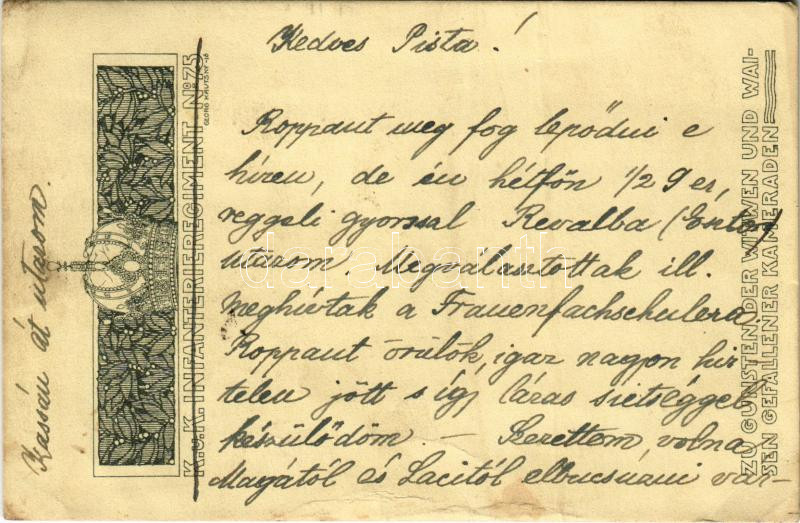 Kedves Pista!
Roppant meg fog lepődni e
híren, de én hétfőn 1/2 9 es,
reggeli gyorssal Revalba
utazom. Megválasztottak ill.
meghívtak a Frauenfachschulera.
Roppant örülök, igaz nagyon hir
telen jött s így lázas sietséggel
készülődöm. – Szerettem volna
Magától és Lacitól elbucsúzni vár–
Kassán át utazom.
K.u.K. INFANTERIEREGIMENT No 75
ZU GUNSTEN DER WITWEN UND WAI-
SEN GEFALLENER KAMERADEN
darabanth